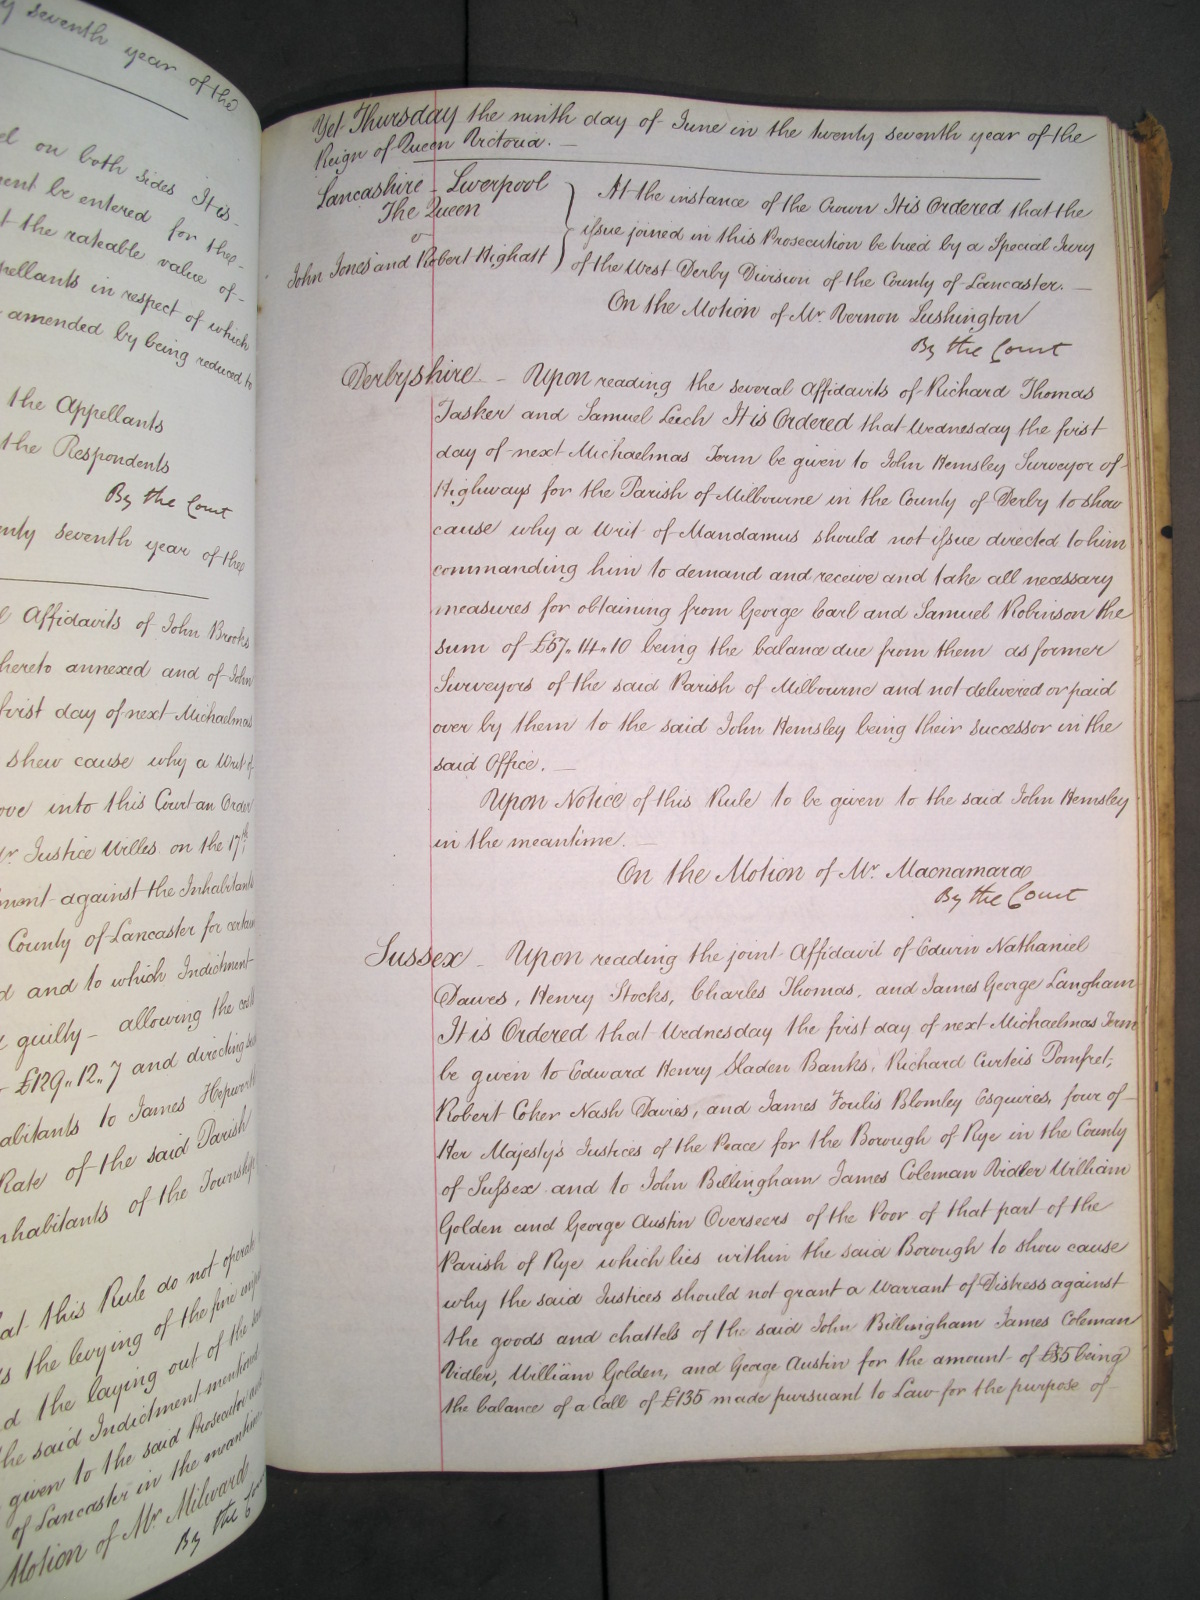 y seventh year of the
d on both sides It is
ment be entered for the
t the rateable value of
pellants in respect of which
amended by being reduced to
the Appellants
the Respondents
By the Court
nty seventh year of the
l Affidavits of John Brooks
hereto annexed and of John
first day of next Michaelmas
shew cause why a Writ of
ove into this Court an Order
Mr Justice Willes on the 17th
ment against the Inhabitants
County of Lancaster for certain
d and to which Indictment
guilty - allowing the
£129.. 12.. 7 and directing
abitants to James Hepworth
Rate of the said Parish
nhabitants of the Township
at this Rule do not operate
s the levying of the fine
d the laying out of the
the said Indictment mentioned
given to the said Prosecutor and
of Lancaster in the meantime
Motion of Mr Milward
By the Co
Yet Thursday the ninth day of June in the twenty seventh year of the
Reign of Queen Victoria. —
Lancashire - Liverpool
The Queen
v
John Jones and Robert Highatt
At the instance of the Crown It is Ordered that the
issue joined in this Prosecution be tried by a Special Jury
of the West Derby Division of the County of Lancaster. —
On the Motion of Mr. Vernon Lushington
By the Court
Derbyshire - Upon reading the several Affidavits of Richard Thomas
Tasker and Samuel Leech It is Ordered that Wednesday the first
day of next Michaelmas Term be given to John Hemsley Surveyor of
Highways for the Parish of Milbourne in the County of Derby to show
cause why a Writ of Mandamus should not issue directed to him
commanding him to demand and receive and take all necessary
measures for obtaining from George Earl and Samuel Robinson the
sum of £57.. 14.. 10 being the balance due from them as former
Surveyors of the said Parish of Milbourne and not delivered or paid
over by them to the said John Hemsley being their successor in the
said Office. —
Upon Notice of this Rule to be given to the said John Hemsley
in the meantime. —
On the Motion of Mr. Macnamara
By the Court
Sussex - Upon reading the joint Affidavit of Edwin Nathaniel
Dawes, Henry Stocks, Charles Thomas, and James George Langham
It is Ordered that Wednesday the first day of next Michaelmas Term
be given to Edward Henry Sladen Banks, Richard Curteis Pomfret,
Robert Coker Nash Davies, and James Foulis Blomley Esquires, four of
Her Majesty's Justices of the Peace for the Borough of Rye in the County
of Sussex and to John Billingham James Coleman Vidler William
Golden and George Austin Overseers of the Poor of that part of the
Parish of Rye which lies within the said Borough to show cause
why the said Justices should not grant a Warrant of Distress against
the goods and chattels of the said John Billingham James Coleman
Vidler, William Golden, and George Austin for the amount of £85 being
the balance of a Call of £135 made pursuant to Law for the purpose of